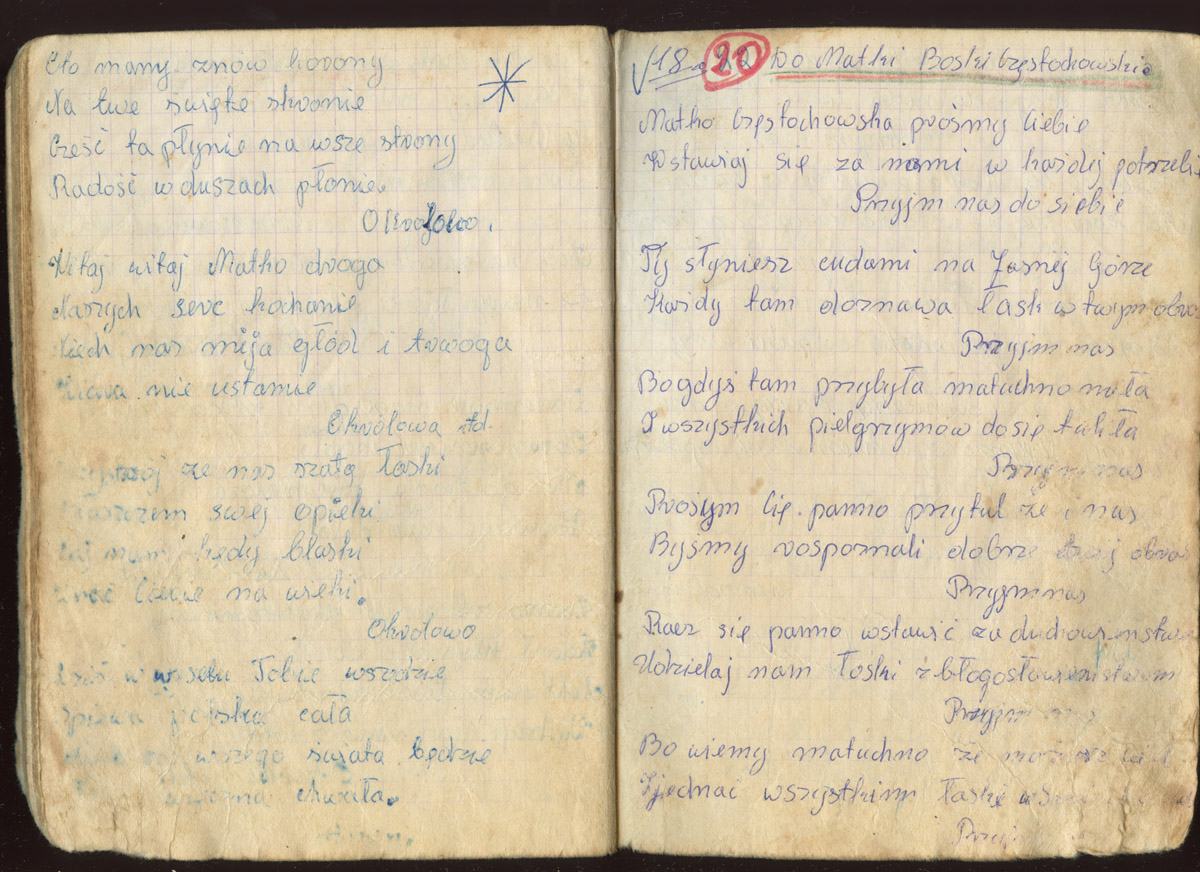 Oto mamy znów korony
Na twe święte skronie
Cześć ta płynie na wsze strony
Radość w duszach płonie.
O Krolowo.
Witaj witaj Matko droga
Naszych serc kochanie
Niech nas mija głód i trwoga
Wiara nie ustanie
O krolowa itd.
ze nas szatą łaski
Płaszczem swej opieki
kędy blaski
Ciebie na wieki.
O krolowo
Dziś w weselu Tobie wszędzie
Śpiewa polska cała
wszego świata będzie
chwała.
18 22 Do Matki Boski Częstochowskie
Matko Częstochowska prośmy Ciebie
Wstawiaj się za nami w każdej potrzebi
Przyjm nas do siebie
Ty słyniesz cudami na Jasnéj Górze
Każdy tam doznawa łask w twym obra
Przyjm nas
Bo gdyś tam przybyła matuchno miła
I wszystkich pielgrzymow do się tuliła
Przyjm nas
Prosiym Cię panno przytul że i nas
Byśmy rospoznali dobrze twój obraz
Przyjm nas
Racz się panno wstawić za duchowenstwem
Udzielaj nam łoski z błogosławienstwem
Przyjm nas
Bo wiemy matuchno że możesz
Zjednać wszystkim łaskę
Przyj